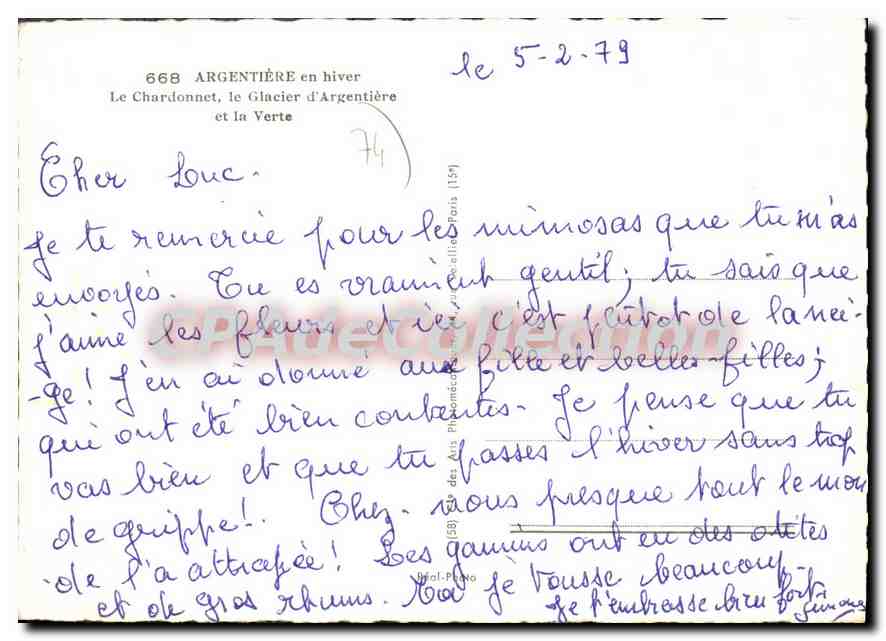 668 ARGENTIÈRE en hiver
Le Chardonnet, le Glacier d'Argentière
et la Verte
74
le 5-2-79
Cher Luc.
Je te remercie pour les mimosas que tu m'as
envoyés. Tu es vraiment gentil; tu sais que
j'aime les fleurs et ici c'est plutot de la nei-
-ge! J'en ai donné aux fille et belles-filles;
qui ont été bien contentes. Je pense que tu
vas bien et que tu passes l'hiver sans trop
de grippe!. Chez-nous presque tout le mon
de l'a attrapée! Les gamins ont eu des otites
et de gros rhums. Moi je tousse beaucoup.
Je t'embrasse bien fort
Simone
(58) des Arts Photomécaniques Paris (15e)
Réal-Photo
CPAdeCollection